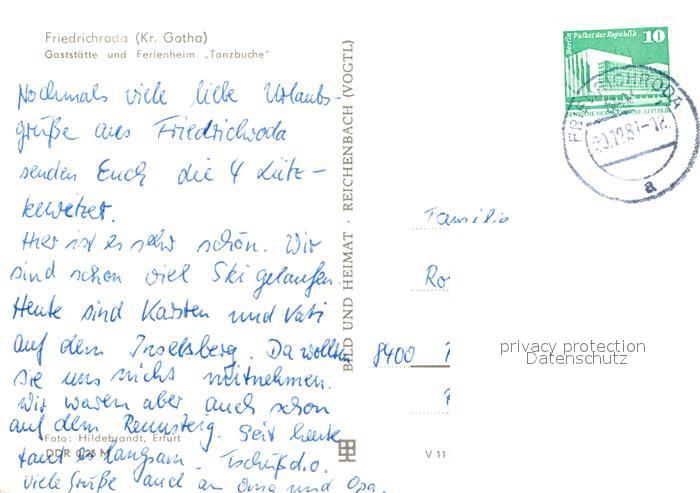 Friedrichroda (Kr. Gotha)
Gaststätte und Ferienheim „Tanzbuche"
Nochmals viele liebe Urlaubs-
grüße aus Friedrichroda
senden Euch die 4 Lütz-
kewitzer.
Hier ist es sehr schön. Wir
sind schon viel Ski gelaufen.
Heute sind Karsten und Vati
auf dem Inselsberg. Da wollten
sie uns nicht mitnehmen.
Wir waren aber auch schon
auf dem Rennsteig. Seit heute
taut es langsam. Tschüß d.o.
viele Grüße auch an Oma und Opa.
Foto: Hildebrandt, Erfurt
DDR 0,25 M
BILD UND HEIMAT · REICHENBACH (VOGTL)
V 11
Berlin Palast der Republik
10
DEUTSCHE DEMOKRATISCHE REPUBLIK
FRIEDRICHRODA
a
Familie
Ro
8400
privacy protection
Datenschutz